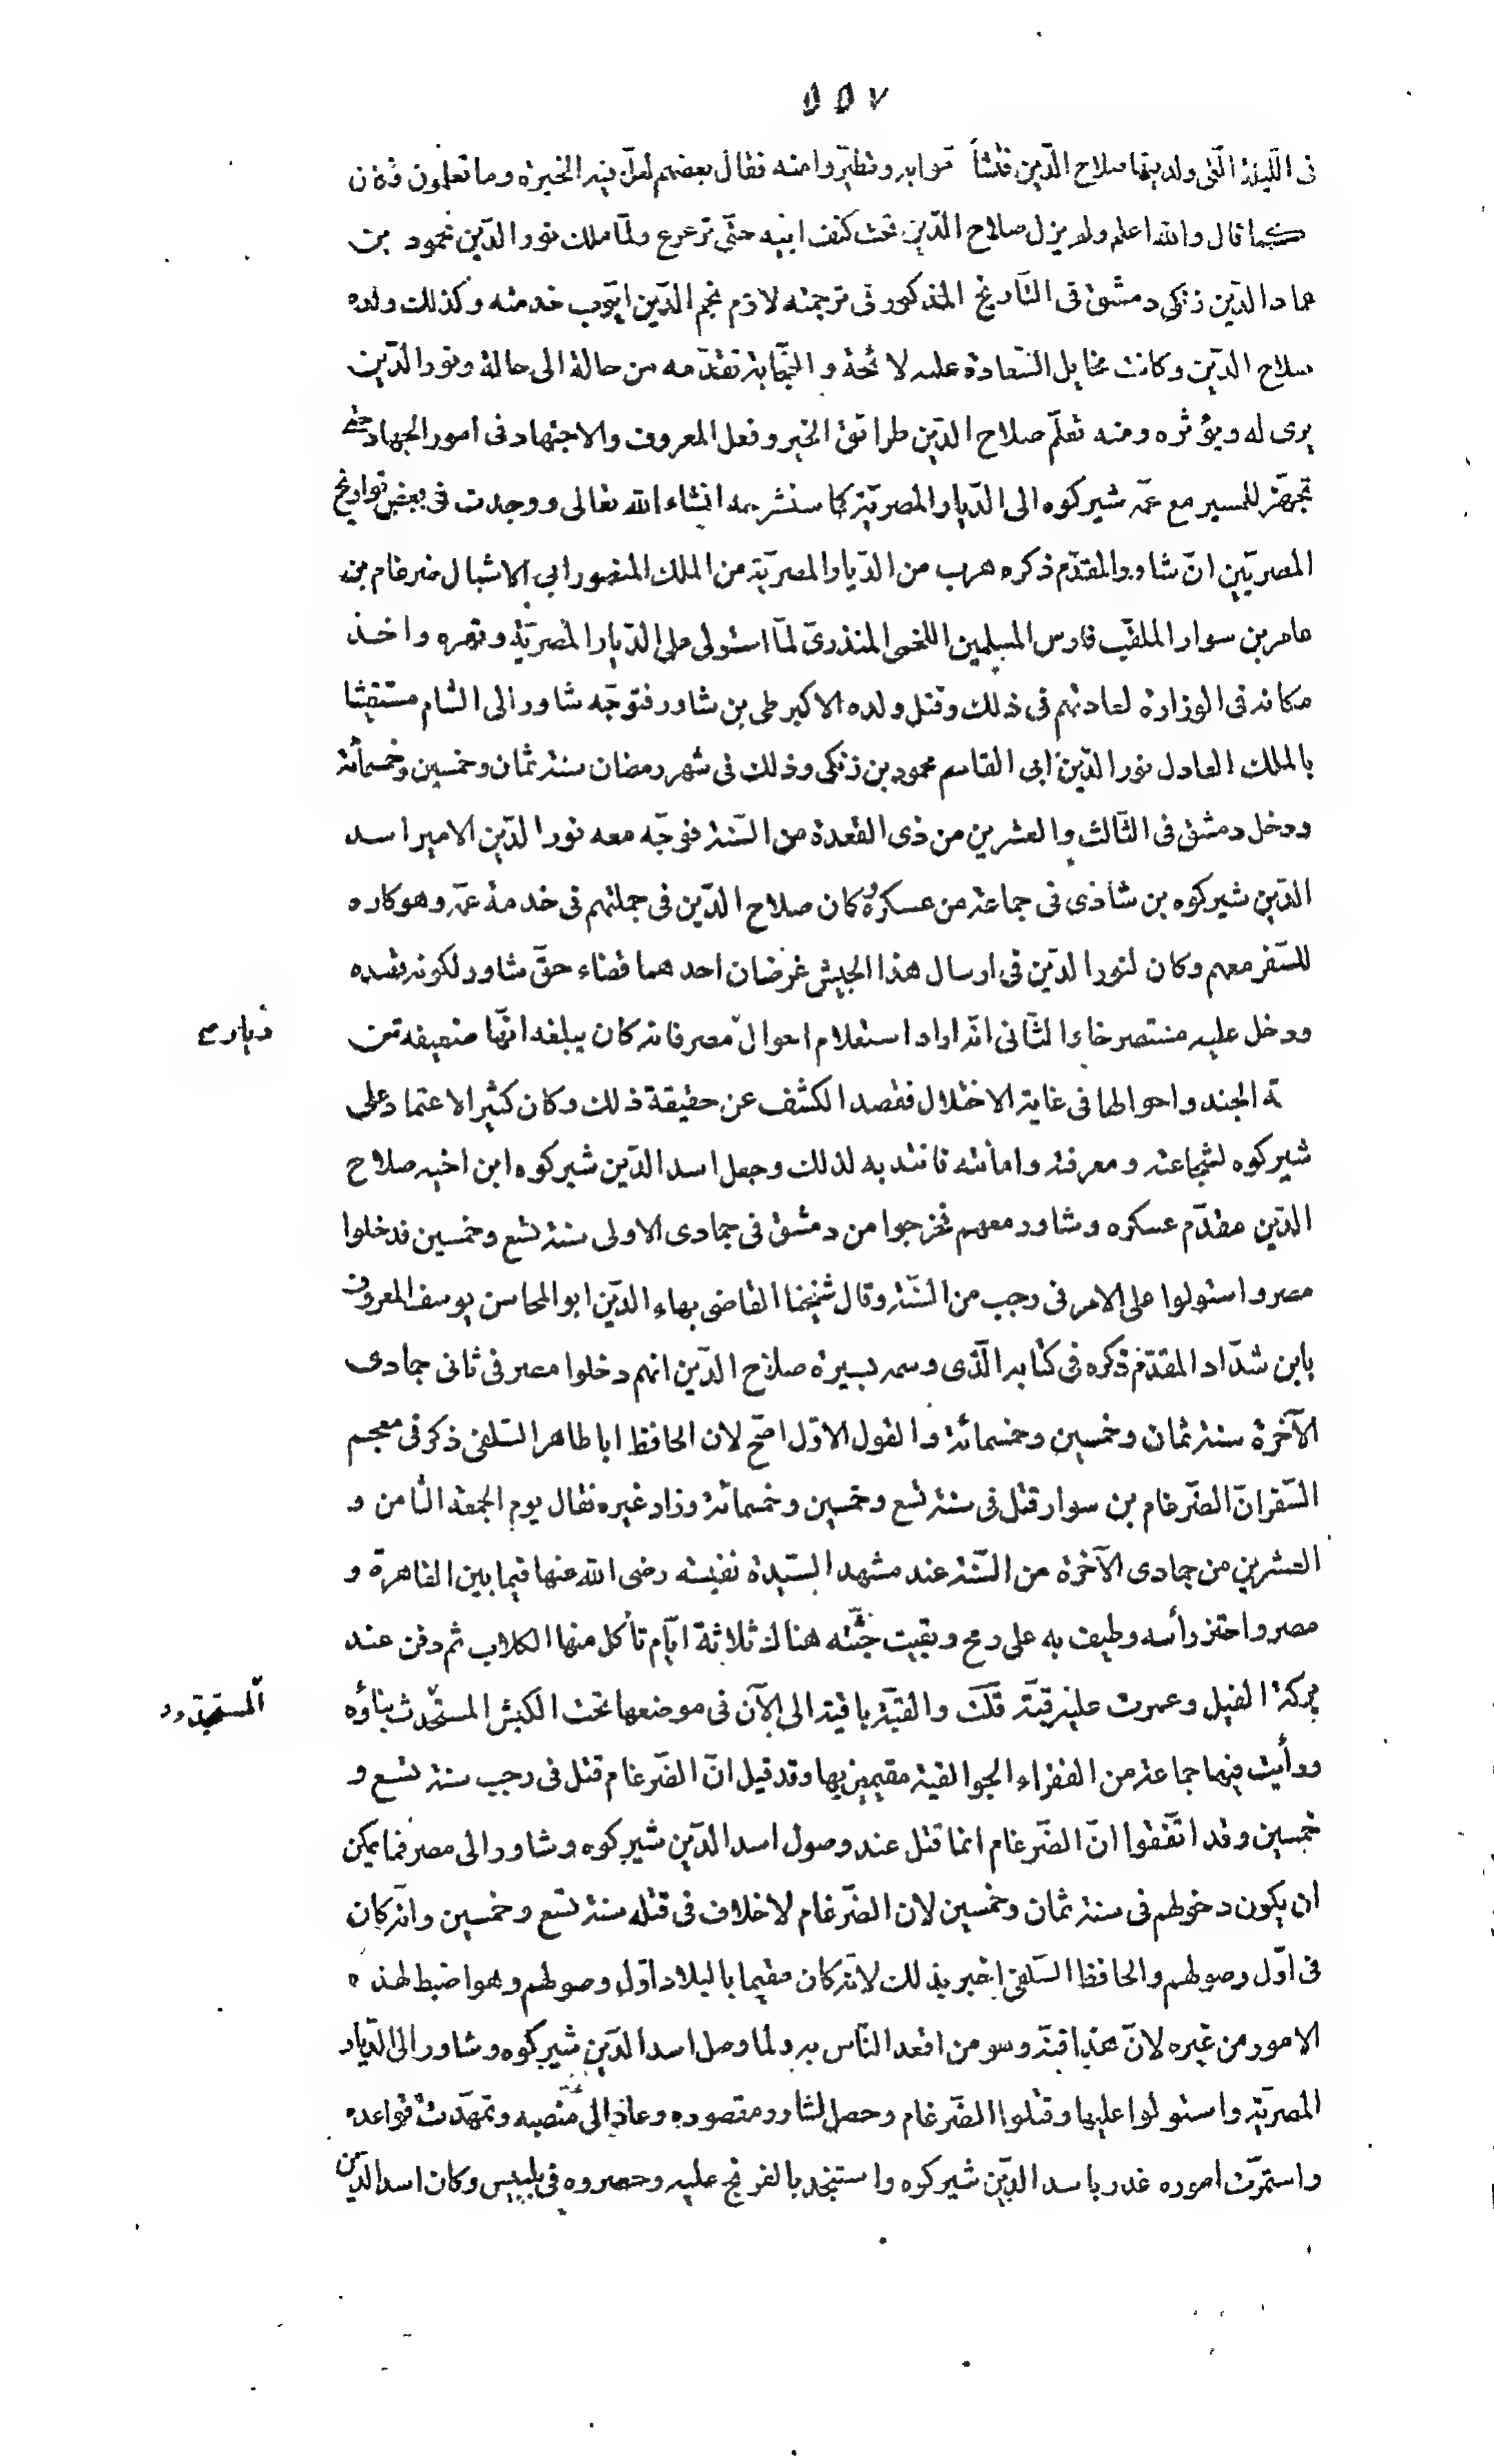 ٥٥٧
فى الليلة الّتى ولد فيها صلاح الدّين فتشأ موا به وتطيّروا منه فقال بعضهم لعلّ فيه الخيرة وما تعلمون فكان
كما قال والله اعلم ولم يزل صلاح الدّين تحت كنف ابيه حتّى ترعرع ولمّا ملك نور الدّين محمود بن
عماد الدّين زنكى دمشق فى التّاريخ المذكور فى ترجمته لازم نجم الدّين ايّوب خدمته وكذلك ولده
صلاح الدّين وكانت مخايل السّعادة عليه لائحة والنّجابة تقدّمه من حالة الى حالة ونور الدّين
يرى له ويؤثره ومنه تعلّم صلاح الدّين طرائق الخير وفعل المعروف والاجتهاد فى امور الجهاد حتّى
تجهّز للمسير مع عمّه شيركوه الى الدّيار المصريّة كما سنشرحه انشاء الله تعالى ووجدت فى بعض تواريخ
المصريّين انّ شاور المقدّم ذكره هرب من الدّيار المصريّة من الملك المنصور ابى الاشبال ضرغام بن
عامر بن سوار الملقّب فارس المسلمين اللخمى المنذرى لمّا استولى على الدّيار المصريّة وقهره واخذ
مكانه فى الوزارة لعادتهم فى ذلك وقتل ولده الاكبر طى بن شاور فتوجّه شاور الى الشام مستغيثا
بالملك العادل نور الدّين ابى القاسم محمود بن زنكى وذلك فى شهر رمضان سنة ثمان وخمسين وخمسمائة
ودخل دمشق فى الثّالث والعشرين من ذى القعدة من السّنة فوجّه معه نور الدّين الامير اسد
الدّين شيركوه بن شاذى فى جماعة من عسكره وكان صلاح الدّين فى جملتهم فى خدمة عمّه وهو كاره
للسّفر معهم وكان لنور الدّين فى ارسال هذا الجيش غرضان احدهما قضاء حقّ شاور لكونه قصده
ودخل عليه مستصرخا والثّانى انّه اراد استعلام احوال مصر فانه كان يبلغه انّها ضعيفة من
ة الجند واحوالها فى غاية الاختلال فقصد الكشف عن حقيقة ذلك وكان كثير الاعتماد على
شيركوه لشجاعته ومعرفته وامانته فانتدبه لذلك وجعل اسد الدّين شيركوه ابن اخيه صلاح
الدّين مقدّم عسكره وشاور معهم فخرجوا من دمشق فى جمادى الاولى سنة تسع وخمسين فدخلوا
مصر واستولوا على الامر فى رجب من السّنة وقال شيخنا القاضى بهاء الدّين ابو المحاسن يوسف المعروف
بابن شدّاد المقدّم ذكره فى كتابه الّذى وسمه بسيرة صلاح الدّين انهم دخلوا مصر فى ثانى جمادى
الآخرة سنة ثمان وخمسين وخمسمائة والقول الاوّل اصّح لان الحافظ ابا طاهر السّلفى ذكر فى معجم
السّفر انّ الضّرغام بن سوار قتل فى سنة تسع وخمسين وخمسمائة وزاد غيره فقال يوم الجمعة الثامن و
العشرين من جمادى الآخرة من السّنة عند مشهد السّيدة نفيسه رضى الله عنها فيما بين القاهرة و
مصر واحتز رأسه وطيف به على رمح وبقيت جثّته هناك ثلاثة ايّام تأكل منها الكلاب ثم دفن عند
بركة الفيل وعمرت عليه قبّة قلت والقبّة باقية الى الآن فى موضعها تحت الكبش المستحدث بناؤه
ورأيت فيها جماعة من الفقراء الجوالقية مقيمين بها وقد قيل انّ الضّرغام قتل فى رجب سنة تسع و
خمسين وقد اتّفقوا انّ الضّرغام انما قتل عند وصول اسد الدّين شيركوه وشاور الى مصر فما يمكن
ان يكون دخولهم فى سنة ثمان وخمسين لان الضّرغام لا خلاف فى قتله سنة تسع وخمسين وانّه كان
فى اوّل وصولهم والحافظ السّلفى اخبر بذلك لانّه كان مقيما بالبلاد اوّل وصولهم وهو اضبط لهذه
الامور من غيره لانّ هذا فنّه وهو من اقعد النّاس به ولما وصل اسد الدّين شيركوه وشاور الى الدّيار
المصريّة واستولوا عليها وقتلوا الضّرغام وحصل لشاور مقصوده وعاد الى منصبه وتمهّدت قواعده
واستمرّت اموره غدر باسد الدّين شيركوه واستنجد بالفرنج عليه وحصروه فى بلبيس وكان اسد الدّين